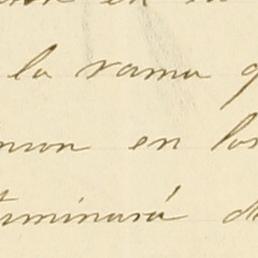 en
la rama q
nion en los
terminará de